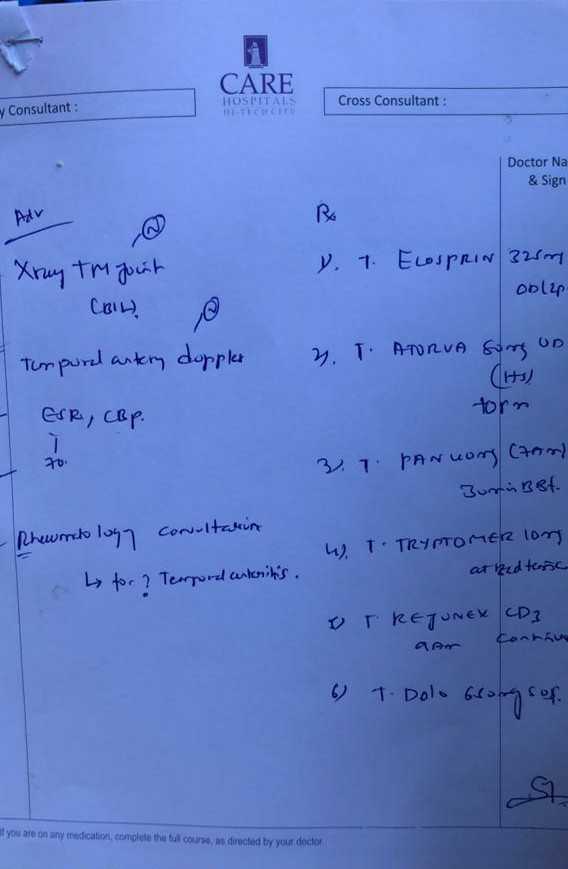 CARE
HOSPITALS
HI-TECH CITY
y Consultant :
Cross Consultant :
Doctor Na
& Sign
Adv
Xray TM joint
(BIL).
N
Temporal artery doppler
N
ESR, CBP.
70.
Rheumatology consultation
↳ for ? Temporal arteritis.
Rx
1). T. ECOSPRIN 325mg
OD (2p
2). T. ATORVA 60mg OD
(HS)
10pm
3). T. PAN 40mg (7AM)
30min BBf.
4). T. TRYPTOMER 10mg
at bed time
5) T REJUNEX CD3
9AM continue
6) T. Dolo 650mg SOS.
If you are on any medication, complete the full course, as directed by your doctor